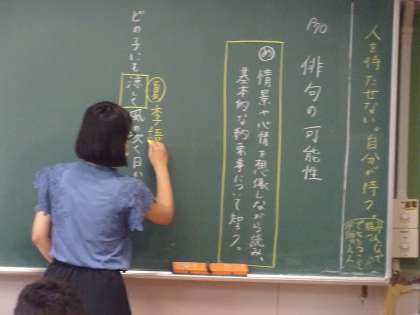 人を待たせない。自分が待つ。
P70 俳句の可能性
め 情景や心情を想像しながら読み、
基本的な約束事について知ろう。
夏 季語
どの子にも涼しく風の吹く日か